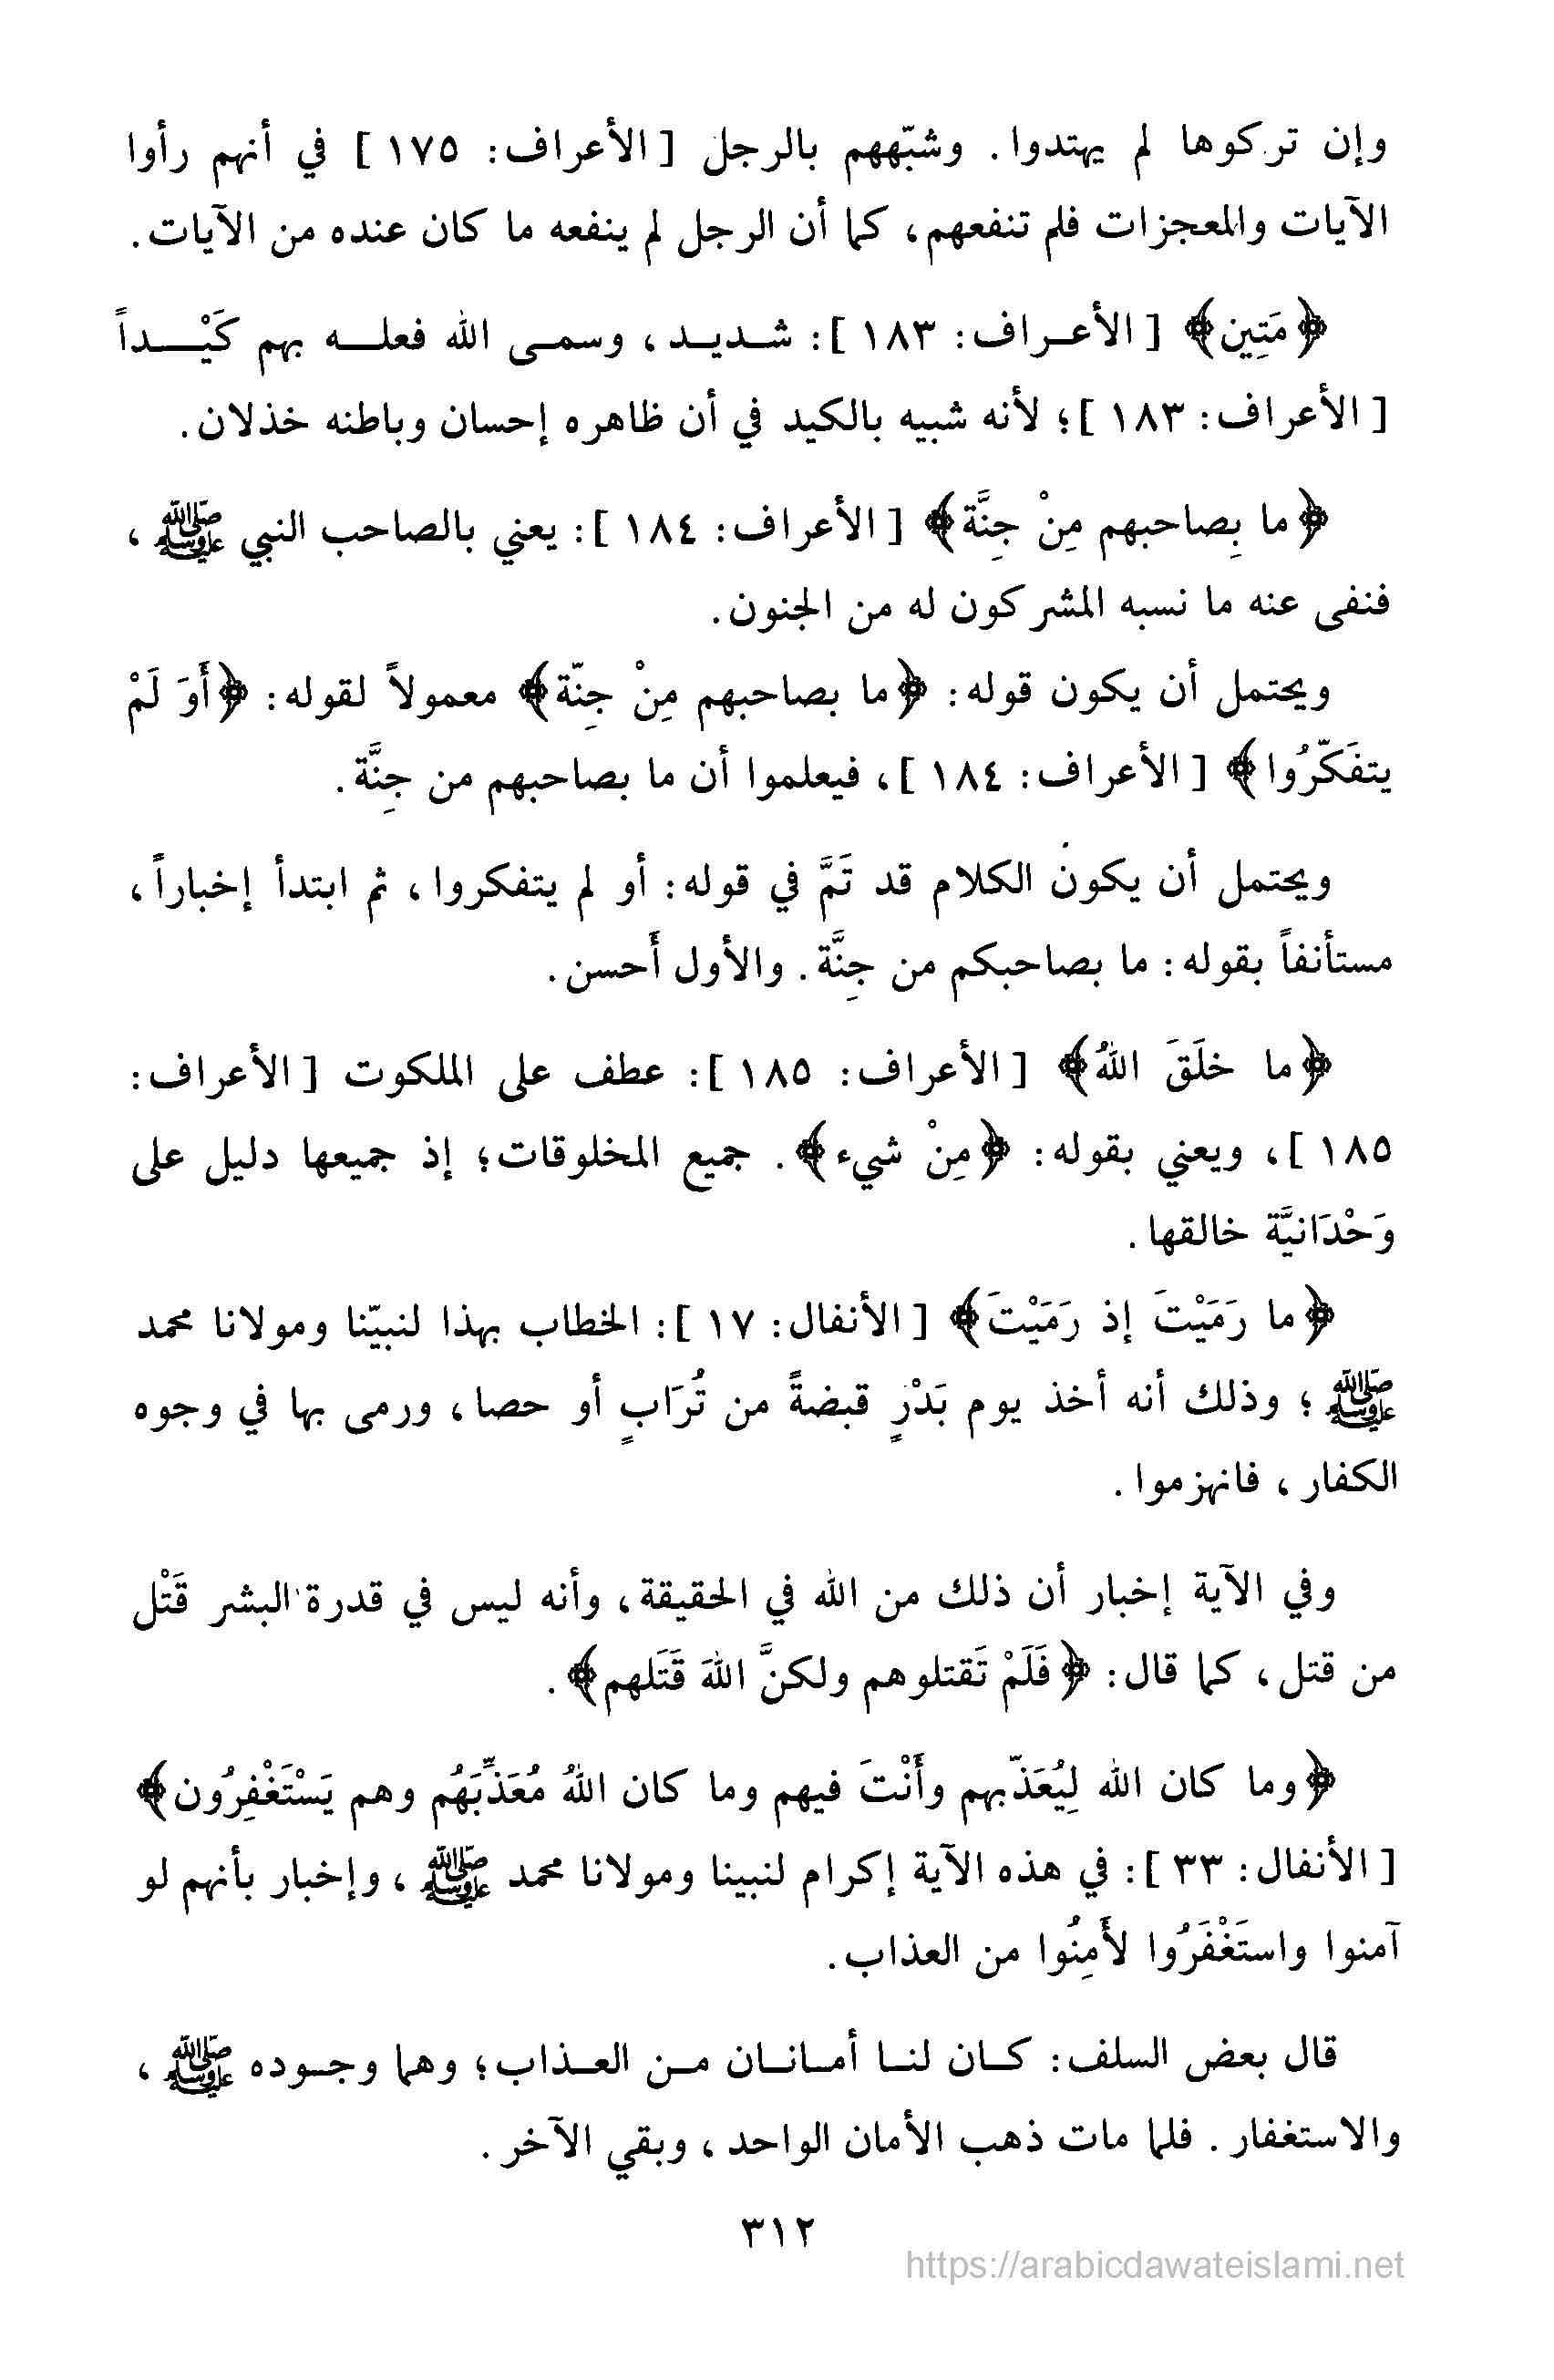 وإن تركوها لم يهتدوا. وشبّههم بالرجل [الأعراف: ١٧٥] في أنهم رأوا
الآيات والمعجزات فلم تنفعهم، كما أن الرجل لم ينفعه ما كان عنده من الآيات.
﴿مَتِين﴾ [الأعراف: ١٨٣]: شديد، وسمى الله فعله بهم كَيْداً
[الأعراف: ١٨٣]؛ لأنه شبيه بالكيد في أن ظاهره إحسان وباطنه خذلان.
﴿ما بِصاحبهم مِنْ جِنَّة﴾ [الأعراف: ١٨٤]: يعني بالصاحب النبي ﷺ،
فنفى عنه ما نسبه المشركون له من الجنون.
ويحتمل أن يكون قوله: ﴿ما بصاحبهم مِنْ جِنّة﴾ معمولاً لقوله: ﴿أَوَ لَمْ
يتفَكّرُوا﴾ [الأعراف: ١٨٤]، فيعلموا أن ما بصاحبهم من جِنَّة.
ويحتمل أن يكون الكلام قد تَمَّ في قوله: أو لم يتفكروا، ثم ابتدأ إخباراً،
مستأنفاً بقوله: ما بصاحبكم من جِنَّة. والأول أَحسن.
﴿ما خلَقَ اللهُ﴾ [الأعراف: ١٨٥]: عطف على الملكوت [الأعراف:
١٨٥]، ويعني بقوله: ﴿مِنْ شيء﴾. جميع المخلوقات؛ إذ جميعها دليل على
وَحْدَانيَّة خالقها.
﴿ما رَمَيْتَ إذ رَمَيْتَ﴾ [الأنفال: ١٧]: الخطاب بهذا لنبيّنا ومولانا محمد
ﷺ؛ وذلك أنه أخذ يوم بَدْرٍ قبضةً من تُرَابٍ أو حصا، ورمى بها في وجوه
الكفار، فانهزموا.
وفي الآية إخبار أن ذلك من الله في الحقيقة، وأنه ليس في قدرة البشر قَتْل
من قتل، كما قال: ﴿فَلَمْ تَقتلوهم ولكنَّ اللهَ قَتَلهم﴾.
﴿وما كان الله لِيُعَذّبهم وأَنْتَ فيهم وما كان اللهُ مُعَذِّبَهُم وهم يَسْتَغْفِرُون﴾
[الأنفال: ٣٣]: في هذه الآية إكرام لنبينا ومولانا محمد ﷺ، وإخبار بأنهم لو
آمنوا واستَغْفَرُوا لأَمِنُوا من العذاب.
قال بعض السلف: كان لنا أمانان من العذاب؛ وهما وجوده ﷺ،
والاستغفار. فلما مات ذهب الأمان الواحد، وبقي الآخر.
٣١٢
https://arabicdawateislami.net